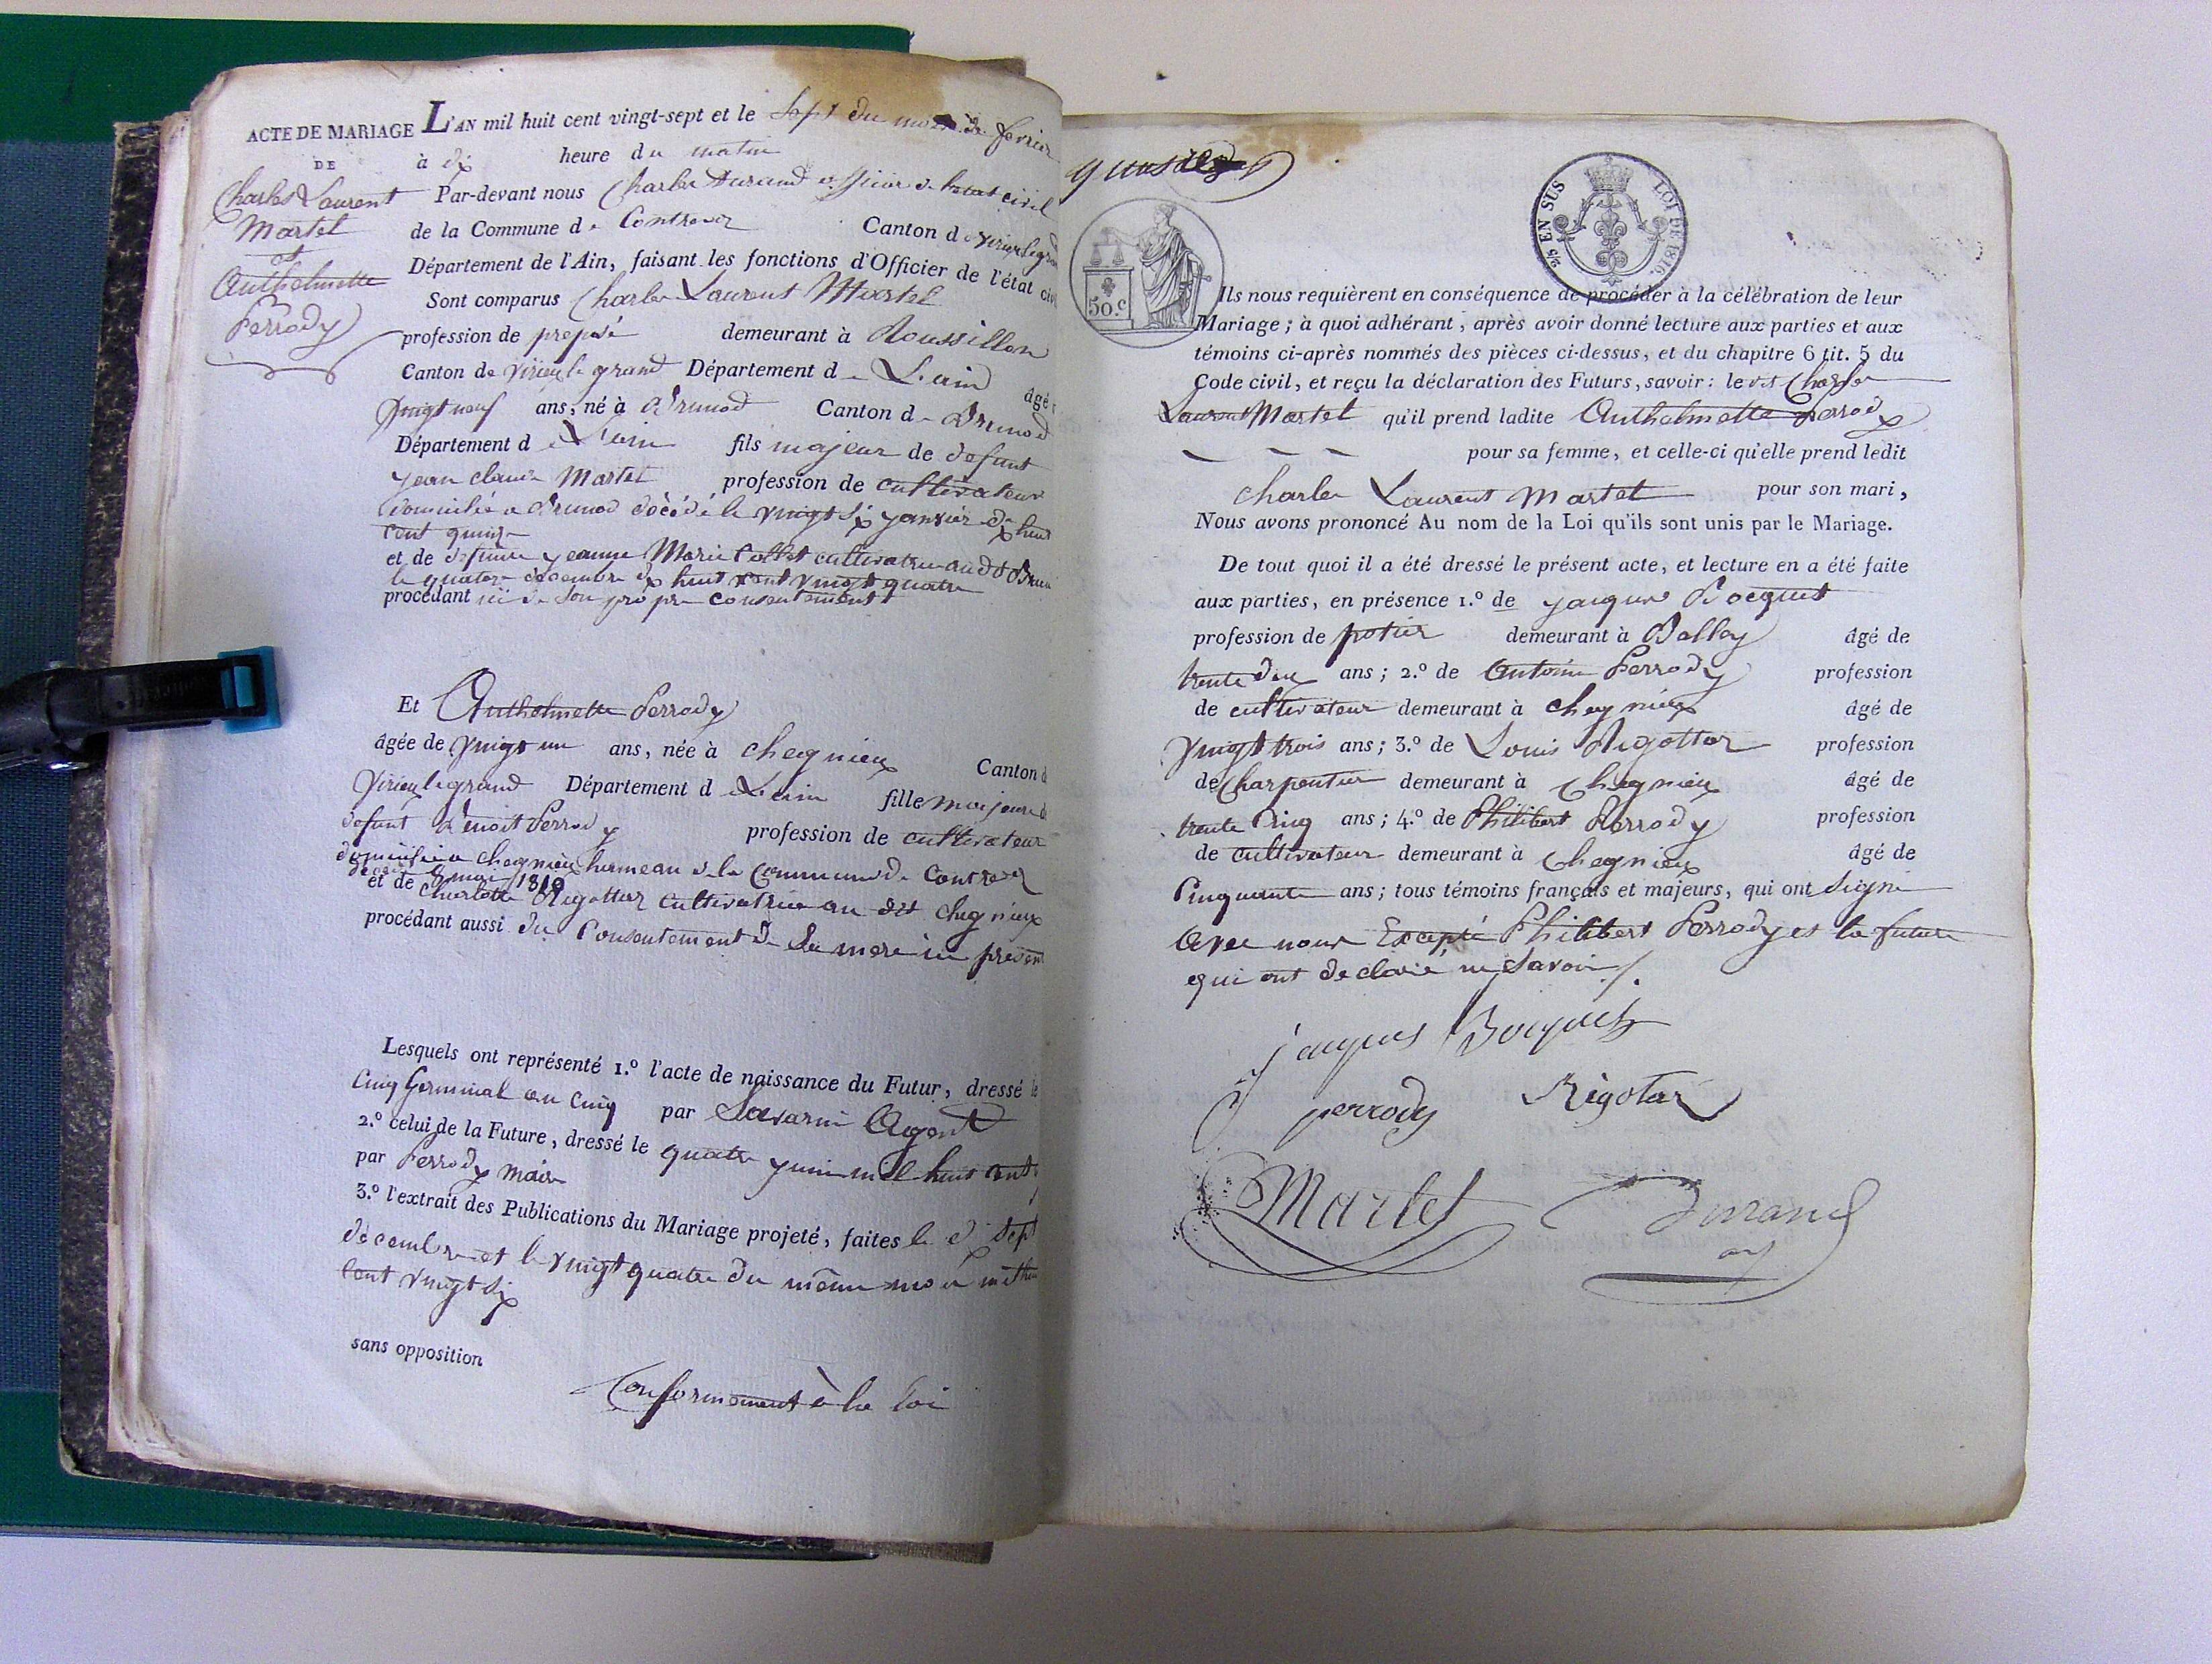 ACTE DE MARIAGE
DE
Charles Laurent
Martel
et
Anthelmette
Perrody
L'AN mil huit cent vingt-sept et le Sept du mois de fevrier
à dix heure du matin
Par-devant nous Charles Durand officier de letat civil
de la Commune de Contrevoz Canton de virieu le grand
Département de l'Ain, faisant les fonctions d'Officier de l'état civ
Sont comparus Charles Laurent Martel
profession de preposé demeurant à Roussillon
Canton de Virieu le grand Département de L'ain âgé
vingt neuf ans, né à Brunod Canton de Brunod
Département de L'ain fils majeur de defunt
jean claude Martel profession de cultivateur
domicilié a Brunod décédé le vingt six janvier dix huit
cent quinze
et de defunte jeanne Marie Collet cultivatrice audit Brun
le quatorze decembre dix huit cent vingt quatre
procédant ici de son propre consentement
Et Anthelmette Perrody
âgée de vingt un ans, née à chegnieux Canton d
Virieu le grand Département de L'ain fille majeure d
defunt Benoit Perrody profession de cultivateur
domicilié a chegnieux hameau de la commune de Contrevoz
décédé 8 mai 1810
et de Charlotte Rigottaz cultivatrice au dit chegnieux
procédant aussi du Consentement de Sa mere ici present
Lesquels ont représenté 1.º l'acte de naissance du Futur, dressé le
Cinq Germinal an Cinq par Savarin Agent
2.º celui de la Future, dressé le quatre juin mil huit cent
par Perrody maire
3.º l'extrait des Publications du Mariage projeté, faites le dix Sept
decembre et le vingt quatre du même mois mil hui
cent vingt six
sans opposition
Conformement à la loi
50.c
25 EN SUS LOI DE 1816.
Ils nous requièrent en conséquence de procéder à la célébration de leur
Mariage ; à quoi adhérant, après avoir donné lecture aux parties et aux
témoins ci-après nommés des pièces ci-dessus, et du chapitre 6 tit. 5 du
Code civil, et reçu la déclaration des Futurs, savoir : le dit Charles
Laurent Martel qu'il prend ladite Anthelmette perrody
pour sa femme, et celle-ci qu'elle prend ledit
charles Laurent martel pour son mari,
Nous avons prononcé Au nom de la Loi qu'ils sont unis par le Mariage.
De tout quoi il a été dressé le présent acte, et lecture en a été faite
aux parties, en présence 1.º de jacques Bocquet
profession de potier demeurant à Belley âgé de
trente deux ans ; 2.º de Antoine Perrody profession
de cultivateur demeurant à chegnieux âgé de
vingt trois ans ; 3.º de Louis Rigottaz profession
de Charpentier demeurant à Chegnieux âgé de
trente cinq ans ; 4.º de Philibert Perrody profession
de cultivateur demeurant à Chegnieux âgé de
Cinquante ans ; tous témoins français et majeurs, qui ont Signé
avec nous Excepté Philibert Perrody et la future
qui ont declaré ne Savoir /.
jacques Bocquet
perrody Rigotaz
Martel Durand